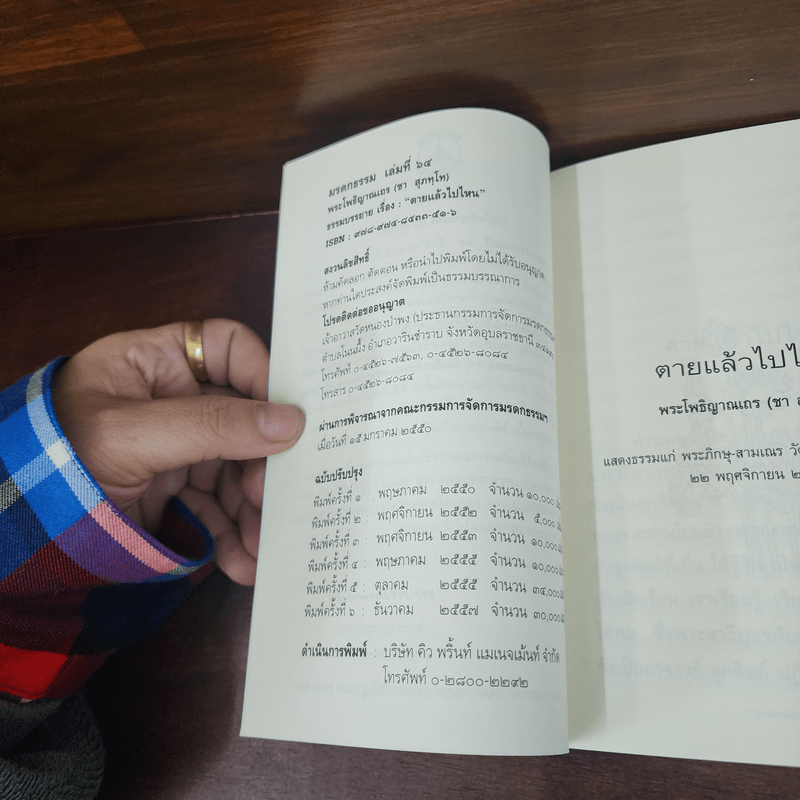 มรดกธรรม เล่มที่ ๖๔
พระโพธิญาณเถร (ชา สุภทฺโท)
ธรรมบรรยาย เรื่อง : "ตายแล้วไปไหน"
ISBN : ๙๗๘-๙๗๔-๘๔๓๓-๕๑-๖
สงวนลิขสิทธิ์
ห้ามคัดลอก ตัดตอน หรือนำไปพิมพ์โดยไม่ได้รับอนุญาต
หากท่านใดประสงค์จัดพิมพ์เป็นธรรมบรรณาการ
โปรดติดต่อขออนุญาต
เจ้าอาวาสวัดหนองป่าพง (ประธานกรรมการจัดการมรดกธรรม
ตำบลโนนผึ้ง อำเภอวารินชำราบ จังหวัดอุบลราชธานี
โทรศัพท์ ๐-๔๕๒๖-๗๕๖๓, ๐-๔๕๒๖-๘๐๘๔
โทรสาร ๐-๔๕๒๖-๘๐๘๔
ผ่านการพิจารณาจากคณะกรรมการจัดการมรดกธรรมฯ
เมื่อวันที่ ๑๕ มกราคม ๒๕๕๐
ฉบับปรับปรุง
พิมพ์ครั้งที่ ๑ : พฤษภาคม ๒๕๕๐ จำนวน ๑๐,๐๐๐
พิมพ์ครั้งที่ ๒ : พฤศจิกายน ๒๕๕๒ จำนวน ๕,๐๐๐
พิมพ์ครั้งที่ ๓ : พฤศจิกายน ๒๕๕๓ จำนวน ๑๐,๐๐๐
พิมพ์ครั้งที่ ๔ : พฤษภาคม ๒๕๕๕ จำนวน ๑๐,๐๐๐
พิมพ์ครั้งที่ ๕ : ตุลาคม ๒๕๕๕ จำนวน ๓๔,๐๐๐
พิมพ์ครั้งที่ ๖ : ธันวาคม ๒๕๕๗ จำนวน ๓๐,๐๐๐
ดำเนินการพิมพ์ : บริษัท คิว พริ้นท์ แมเนจเม้นท์ จำกัด
โทรศัพท์ ๐-๒๘๐๐-๒๒๙๒
ตายแล้วไปไ
พระโพธิญาณเถร (ชา ส
แสดงธรรมแก่ พระภิกษุ-สามเณร วั
๒๒ พฤศจิกายน ๒